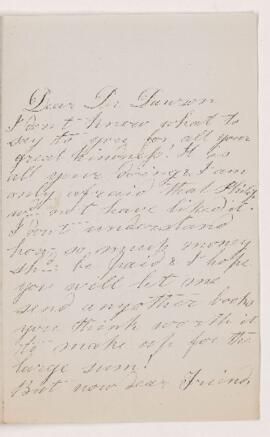 Dear Dr. Dawson
I don't know what to
say to you for all your
great kindness! It is
all your doing & I am
only afraid that Philip
will not have liked it.
I don't understand
how so much money
shd. be paid & I hope
you will let me
send any other books
you think worth it
to make up for the
large sum!
But now dear Friend